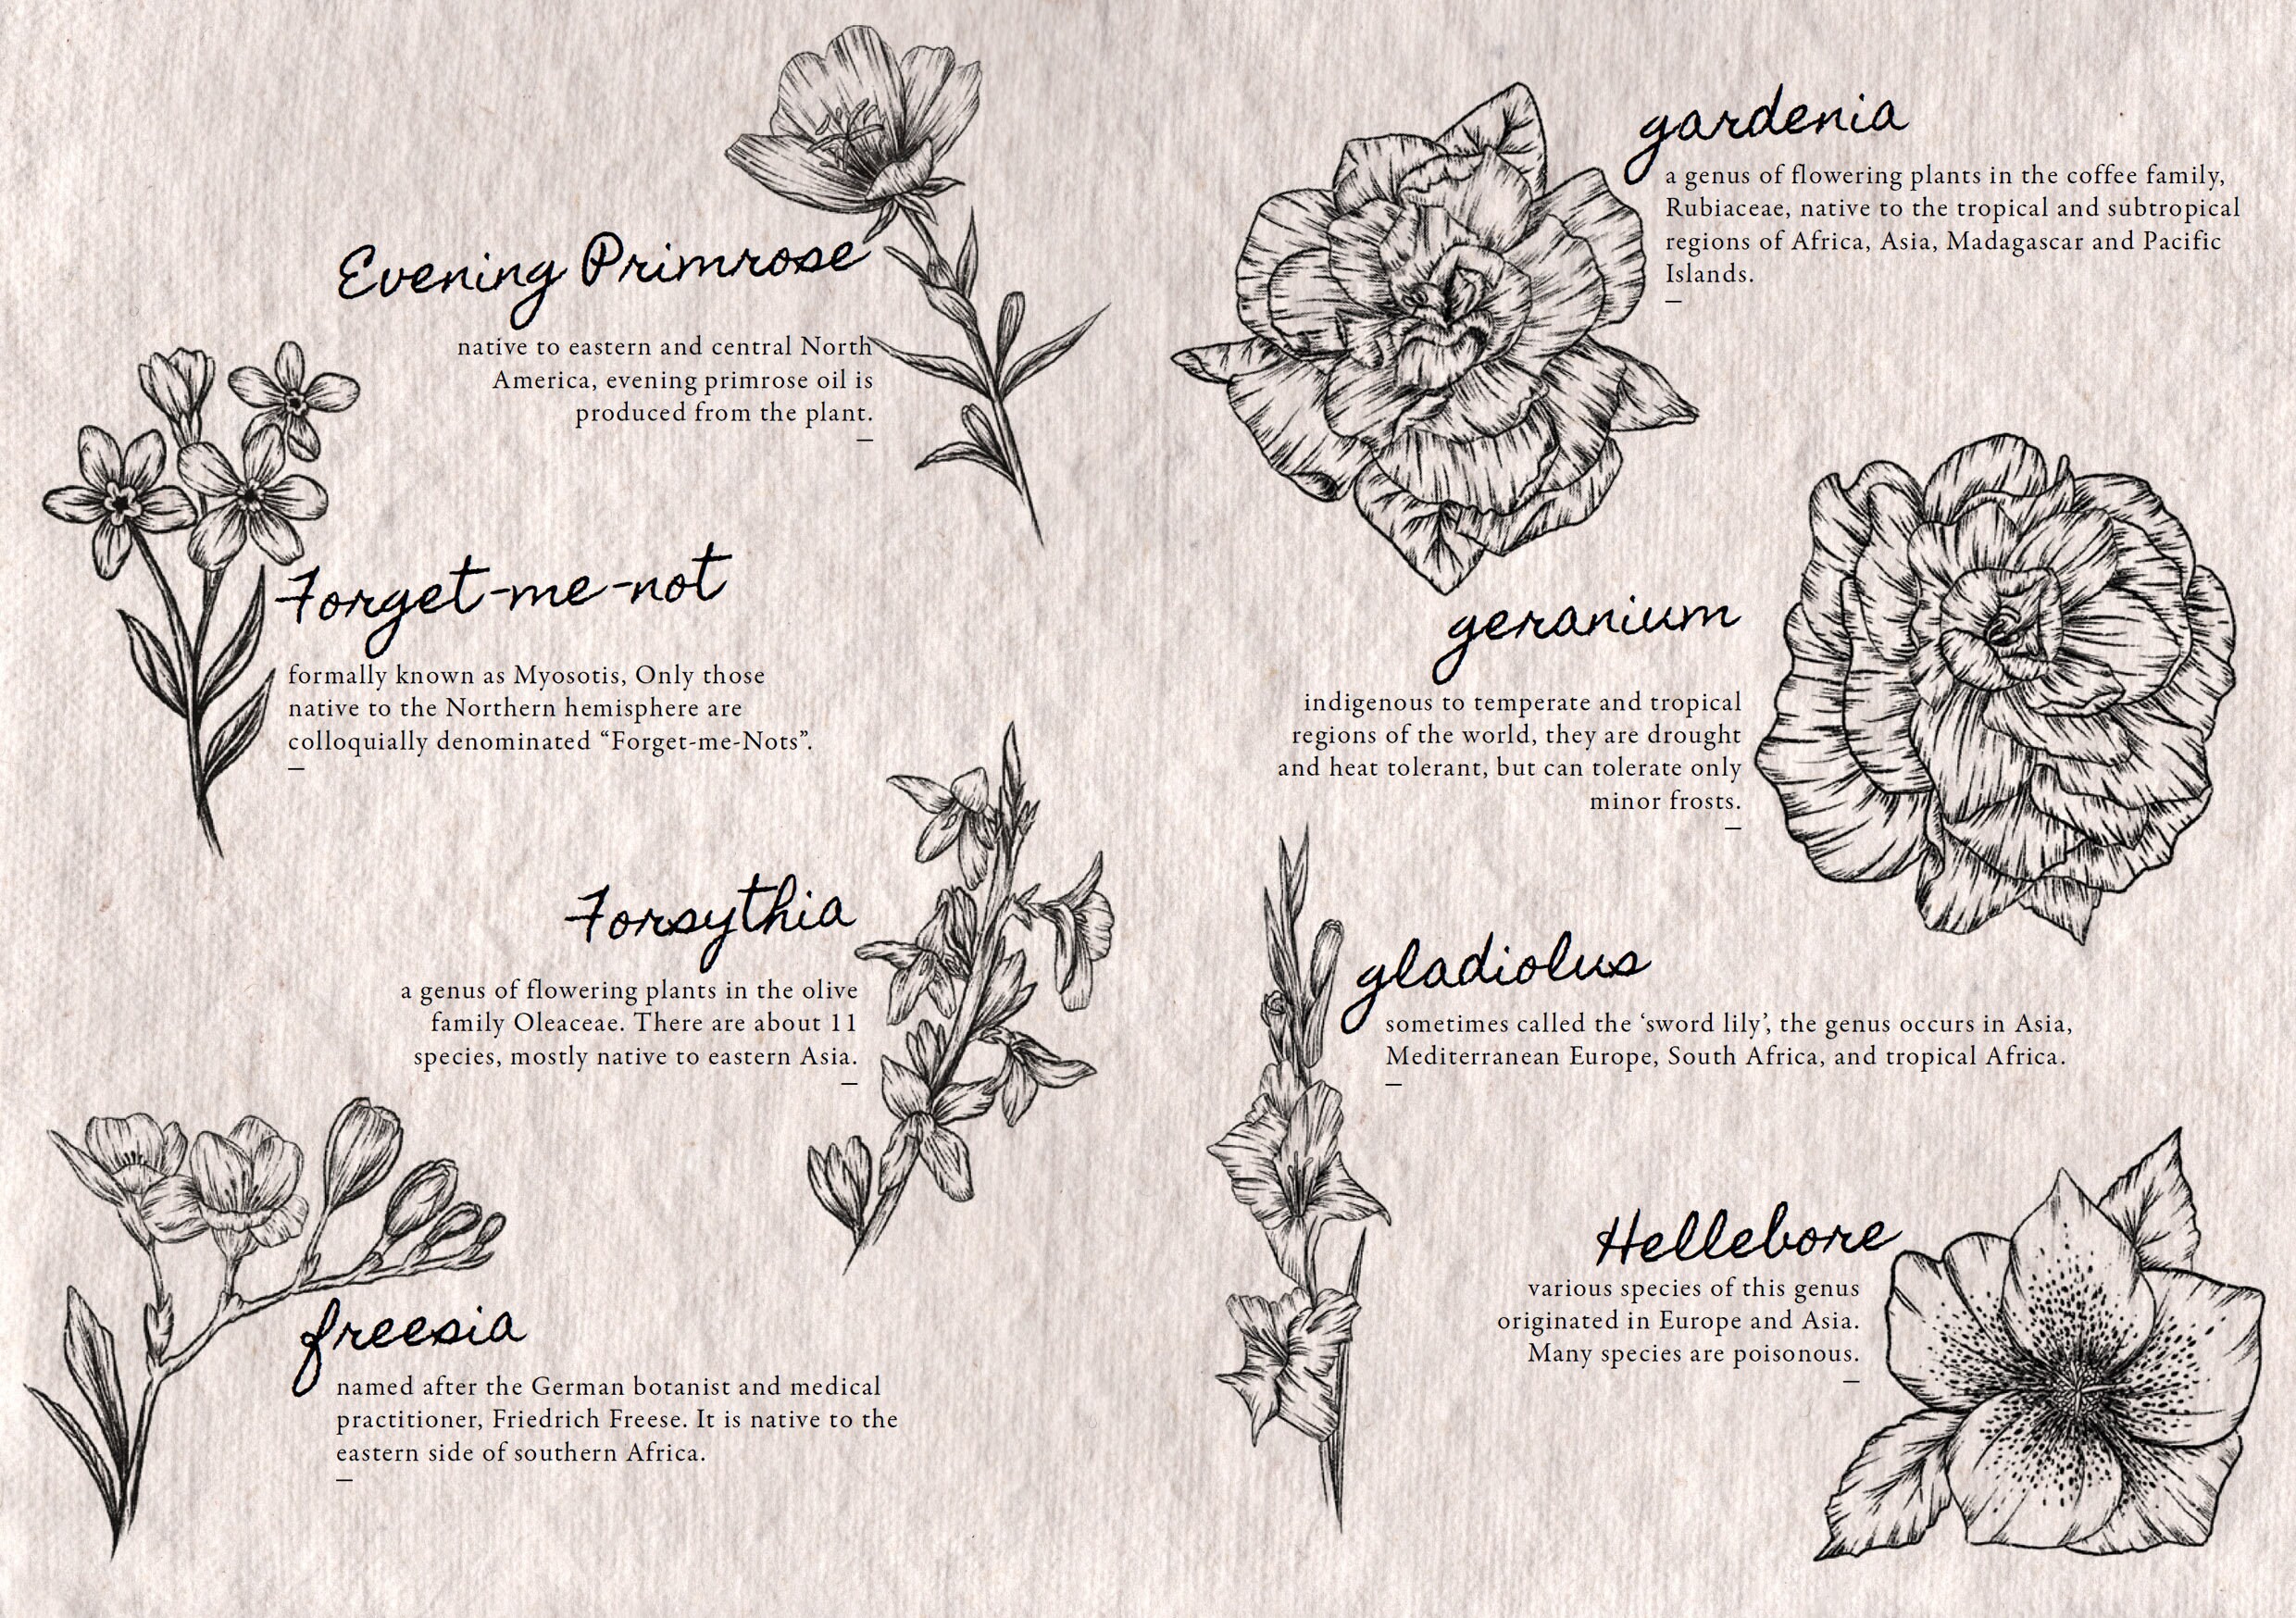 Evening Primrose
native to eastern and central North
America, evening primrose oil is
produced from the plant.
Forget-me-not
formally known as Myosotis, Only those
native to the Northern hemisphere are
colloquially denominated “Forget-me-Nots”.
Forsythia
a genus of flowering plants in the olive
family Oleaceae. There are about 11
species, mostly native to eastern Asia.
freesia
named after the German botanist and medical
practitioner, Friedrich Freese. It is native to the
eastern side of southern Africa.
gardenia
a genus of flowering plants in the coffee family,
Rubiaceae, native to the tropical and subtropical
regions of Africa, Asia, Madagascar and Pacific
Islands.
geranium
indigenous to temperate and tropical
regions of the world, they are drought
and heat tolerant, but can tolerate only
minor frosts.
gladiolus
sometimes called the ‘sword lily’, the genus occurs in Asia,
Mediterranean Europe, South Africa, and tropical Africa.
Hellebore
various species of this genus
originated in Europe and Asia.
Many species are poisonous.